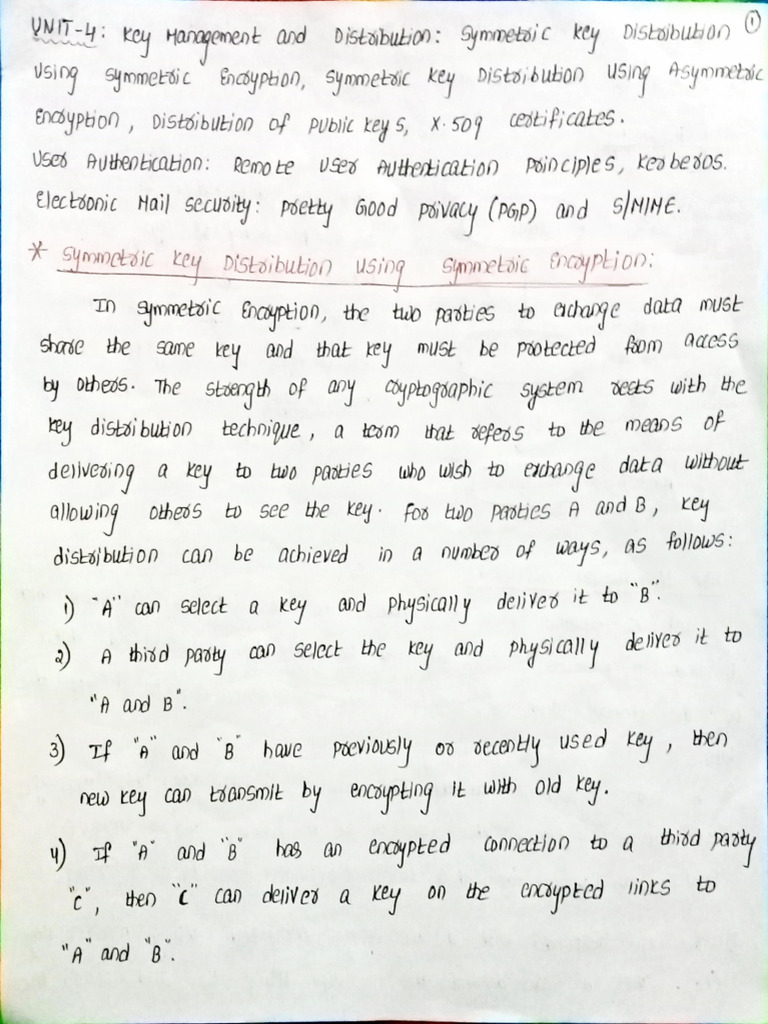 UNIT-4: Key Management and Distribution: Symmetric Key Distribution ①
Using Symmetric Encryption, Symmetric Key Distribution Using Asymmetric
Encryption, Distribution of Public Keys, X.509 certificates.
User Authentication: Remote User Authentication Principles, Kerberos.
Electronic Mail Security: Pretty Good Privacy (PGP) and S/MIME.
* Symmetric Key Distribution using Symmetric Encryption:
In Symmetric Encryption, the two parties to exchange data must
share the same key and that key must be protected from access
by others. The strength of any cryptographic system rests with the
key distribution technique, a term that refers to the means of
delivering a key to two parties who wish to exchange data without
allowing others to see the key. For two parties A and B, key
distribution can be achieved in a number of ways, as follows:
1) "A" can select a key and physically deliver it to "B".
2) A third party can select the key and physically deliver it to
"A and B".
3) If "A" and "B" have previously or recently used key, then
new key can transmit by encrypting it with old key.
4) If "A" and "B" has an encrypted connection to a third party
"C", then "C" can deliver a key on the encrypted links to
"A" and "B".